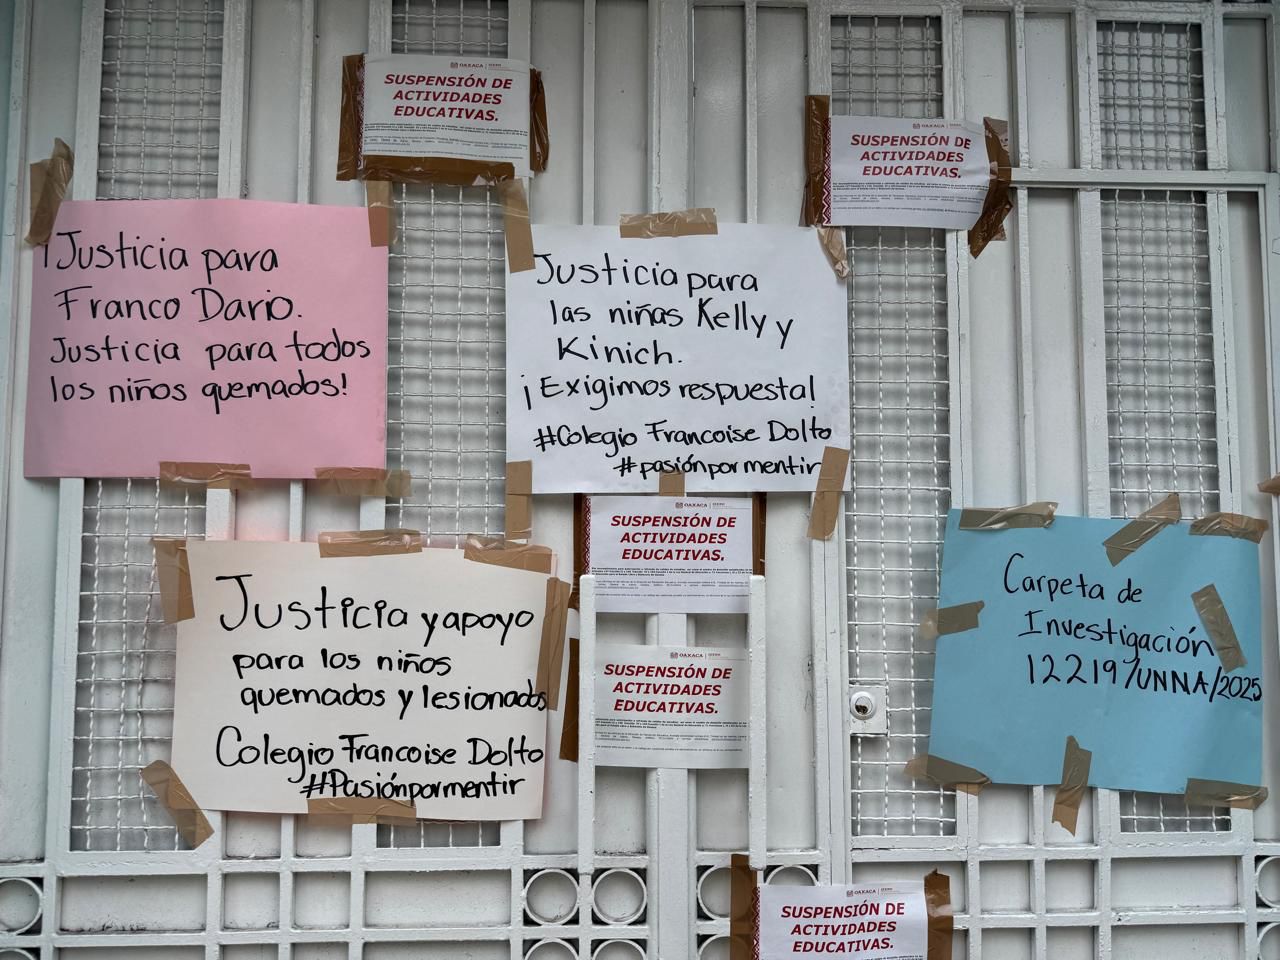 OAXACA
SUSPENSIÓN DE
ACTIVIDADES
EDUCATIVAS.
OAXACA
SUSPENSIÓN DE
ACTIVIDADES
EDUCATIVAS.
¡Justicia para
Franco Dario.
Justicia para todos
los niños quemados!
Justicia para
las niñas Kelly y
Kinich.
¡Exigimos respuesta!
#Colegio Francoise Dolto
#pasiónpormentir
OAXACA
SUSPENSIÓN DE
ACTIVIDADES
EDUCATIVAS.
Justicia y apoyo
para los niños
quemados y lesionados
Colegio Francoise Dolto
#Pasiónpormentir
OAXACA
SUSPENSIÓN DE
ACTIVIDADES
EDUCATIVAS.
Carpeta de
Investigación
12219/UNNA/2025
OAXACA
SUSPENSIÓN DE
ACTIVIDADES
EDUCATIVAS.